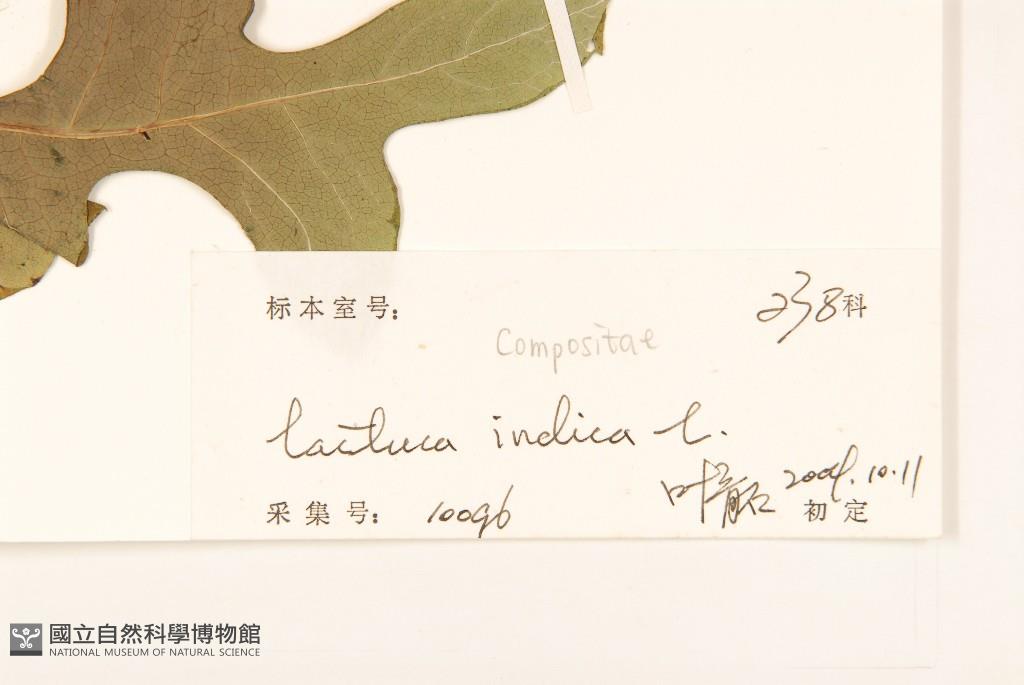 标本室号: 238科
Compositae
Lactuca indica L.
叶 2004.10.11
采集号: 10096 初定
國立自然科學博物館
NATIONAL MUSEUM OF NATURAL SCIENCE